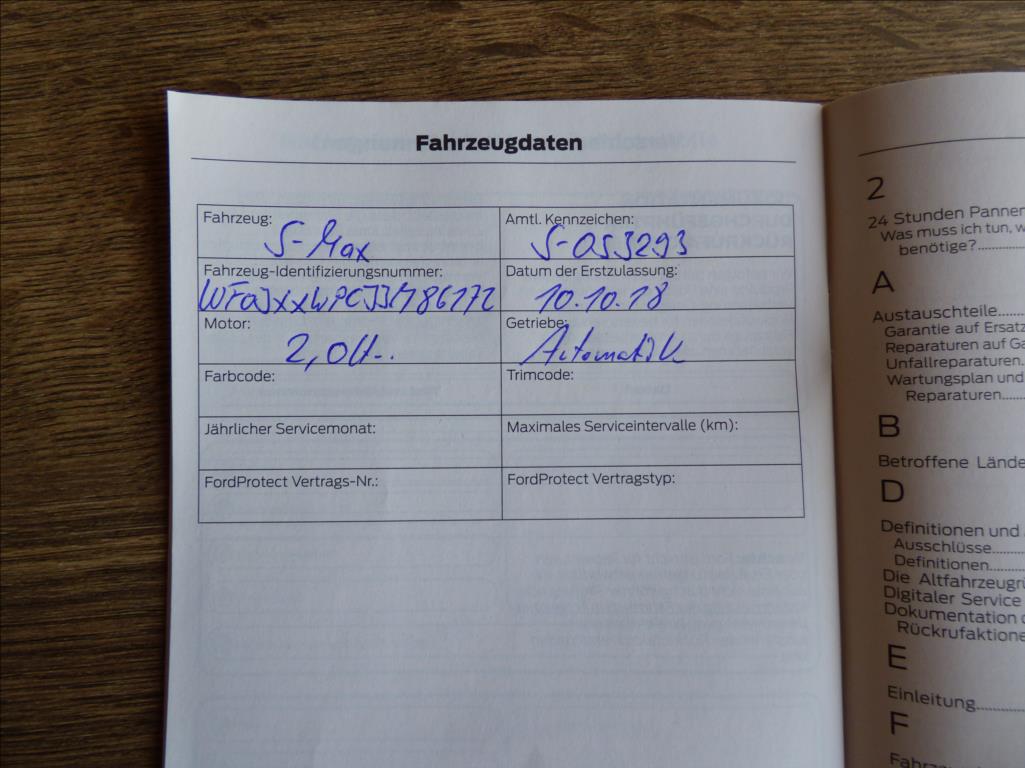 Fahrzeugdaten
Fahrzeug: S-Max
Amtl. Kennzeichen: S-OS3293
Fahrzeug-Identifizierungsnummer:
Datum der Erstzulassung: 10.10.18
Motor: 2,0lt.
Getriebe: Automatik
Farbcode:
Trimcode:
Jährlicher Servicemonat:
Maximales Serviceintervalle (km):
FordProtect Vertrags-Nr.:
FordProtect Vertragstyp:
2
24 Stunden Panner
Was muss ich tun, w
benötige?
A
Austauschteile
Garantie auf Ersatz
Reparaturen auf Ga
Unfallreparaturen
Wartungsplan und
Reparaturen
B
Betroffene Lände
D
Definitionen und
Ausschlüsse
Definitionen
Die Altfahrzeugr
Digitaler Service
Dokumentation
Rückrufaktione
E
Einleitung
F